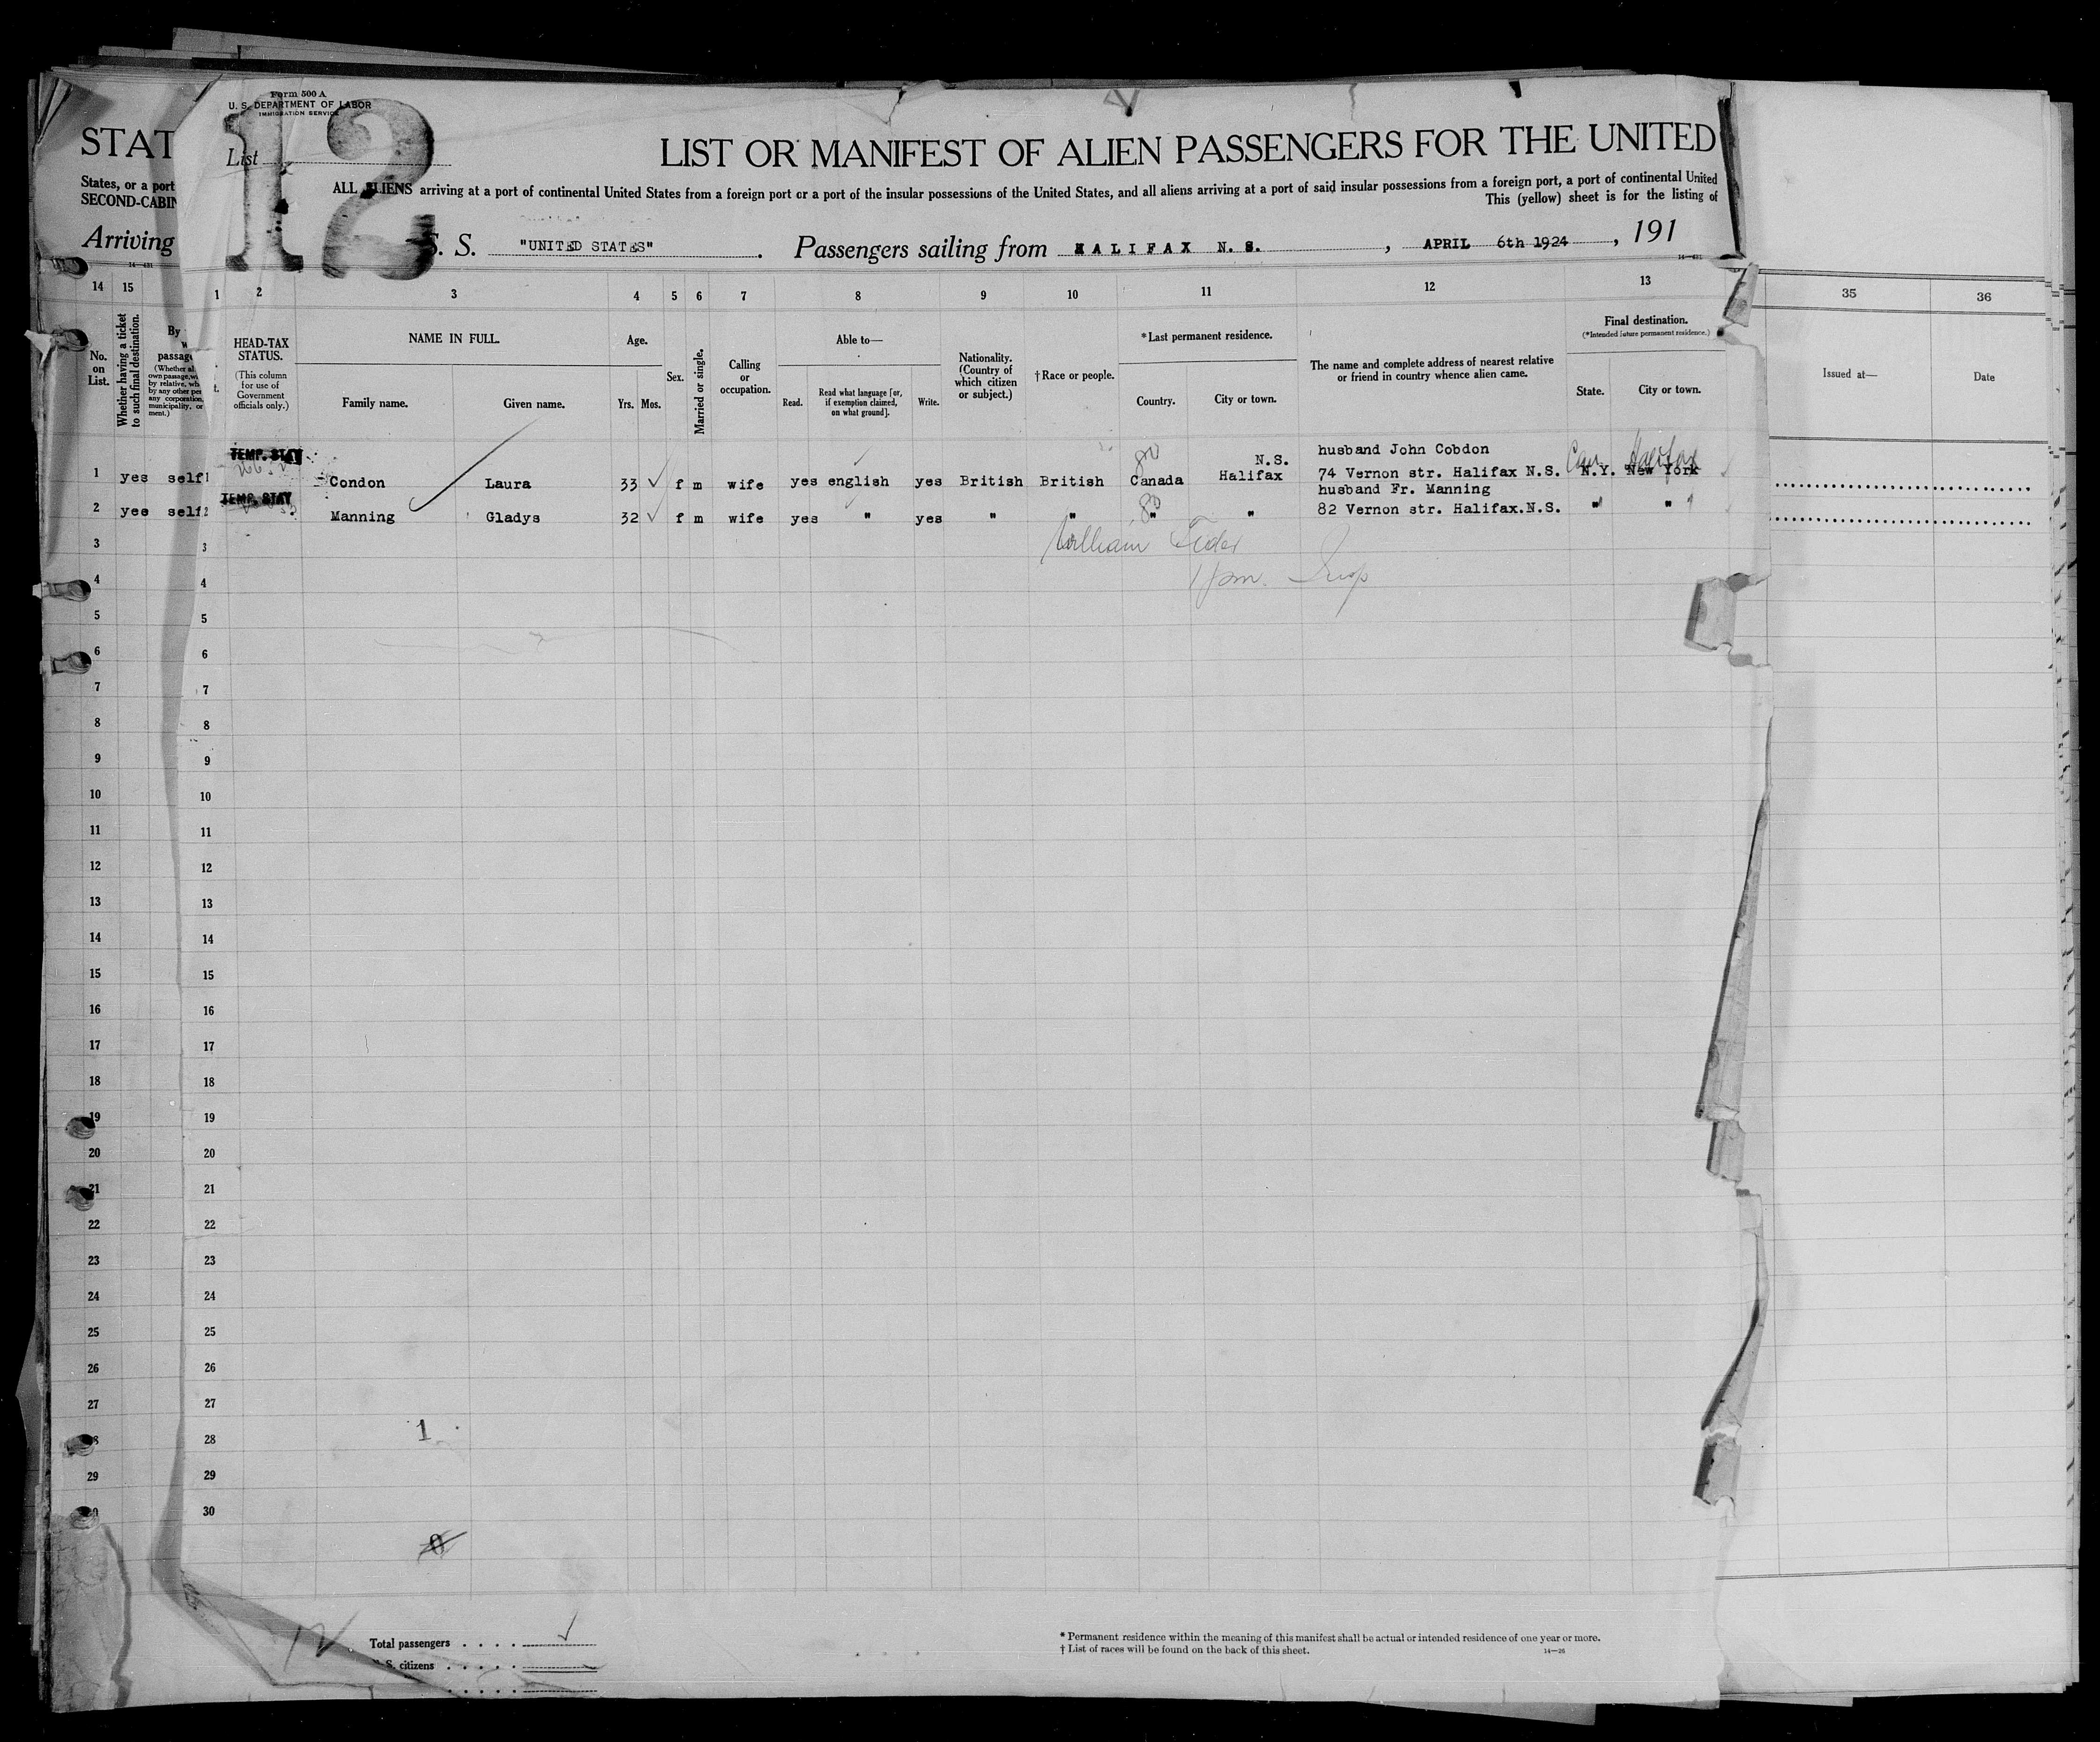 Form 500 A
U. S. DEPARTMENT OF LABOR
IMMIGRATION SERVICE
12
List
STAT
LIST OR MANIFEST OF ALIEN PASSENGERS FOR THE UNITED
States, or a port
SECOND-CABIN
ALL ALIENS arriving at a port of continental United States from a foreign port or a port of the insular possessions of the United States, and all aliens arriving at a port of said insular possessions from a foreign port, a port of continental United
This (yellow) sheet is for the listing of
Arriving
S. S. "UNITED STATES". Passengers sailing from HALIFAX N. S., APRIL 6th 1924, 191
14 15 1 2 3 4 5 6 7 8 9 10 11 12 13 35 36
No. on List.
Whether having a ticket to such final destination.
By
passage
HEAD-TAX STATUS.
(This column for use of Government officials only.)
NAME IN FULL.
Family name. Given name.
Age.
Yrs. Mos.
Sex.
Married or single.
Calling or occupation.
Able to—
Read. Read what language [or, if exemption claimed, on what ground]. Write.
Nationality. (Country of which citizen or subject.)
†Race or people.
*Last permanent residence.
Country. City or town.
The name and complete address of nearest relative or friend in country whence alien came.
Final destination.
(*Intended future permanent residence.)
State. City or town.
Issued at—
Date
TEMP. STAY
husband John Cobdon
Can Halifax
1 yes self 1 Condon Laura 33 ✓ f m wife yes english yes British British Canada N.S. Halifax 74 Vernon str. Halifax N.S. N.Y. New York
TEMP. STAY
husband Fr. Manning
2 yes self 2 Manning Gladys 32 ✓ f m wife yes " yes " " " " 82 Vernon str. Halifax.N.S. " "
3 3
William
4 4
5 5
6 6
7 7
8 8
9 9
10 10
11 11
12 12
13 13
14 14
15 15
16 16
17 17
18 18
19 19
20 20
21 21
22 22
23 23
24 24
25 25
26 26
27 27
1
28
29 29
30
Total passengers
S. citizens
* Permanent residence within the meaning of this manifest shall be actual or intended residence of one year or more.
† List of races will be found on the back of this sheet.
14—26